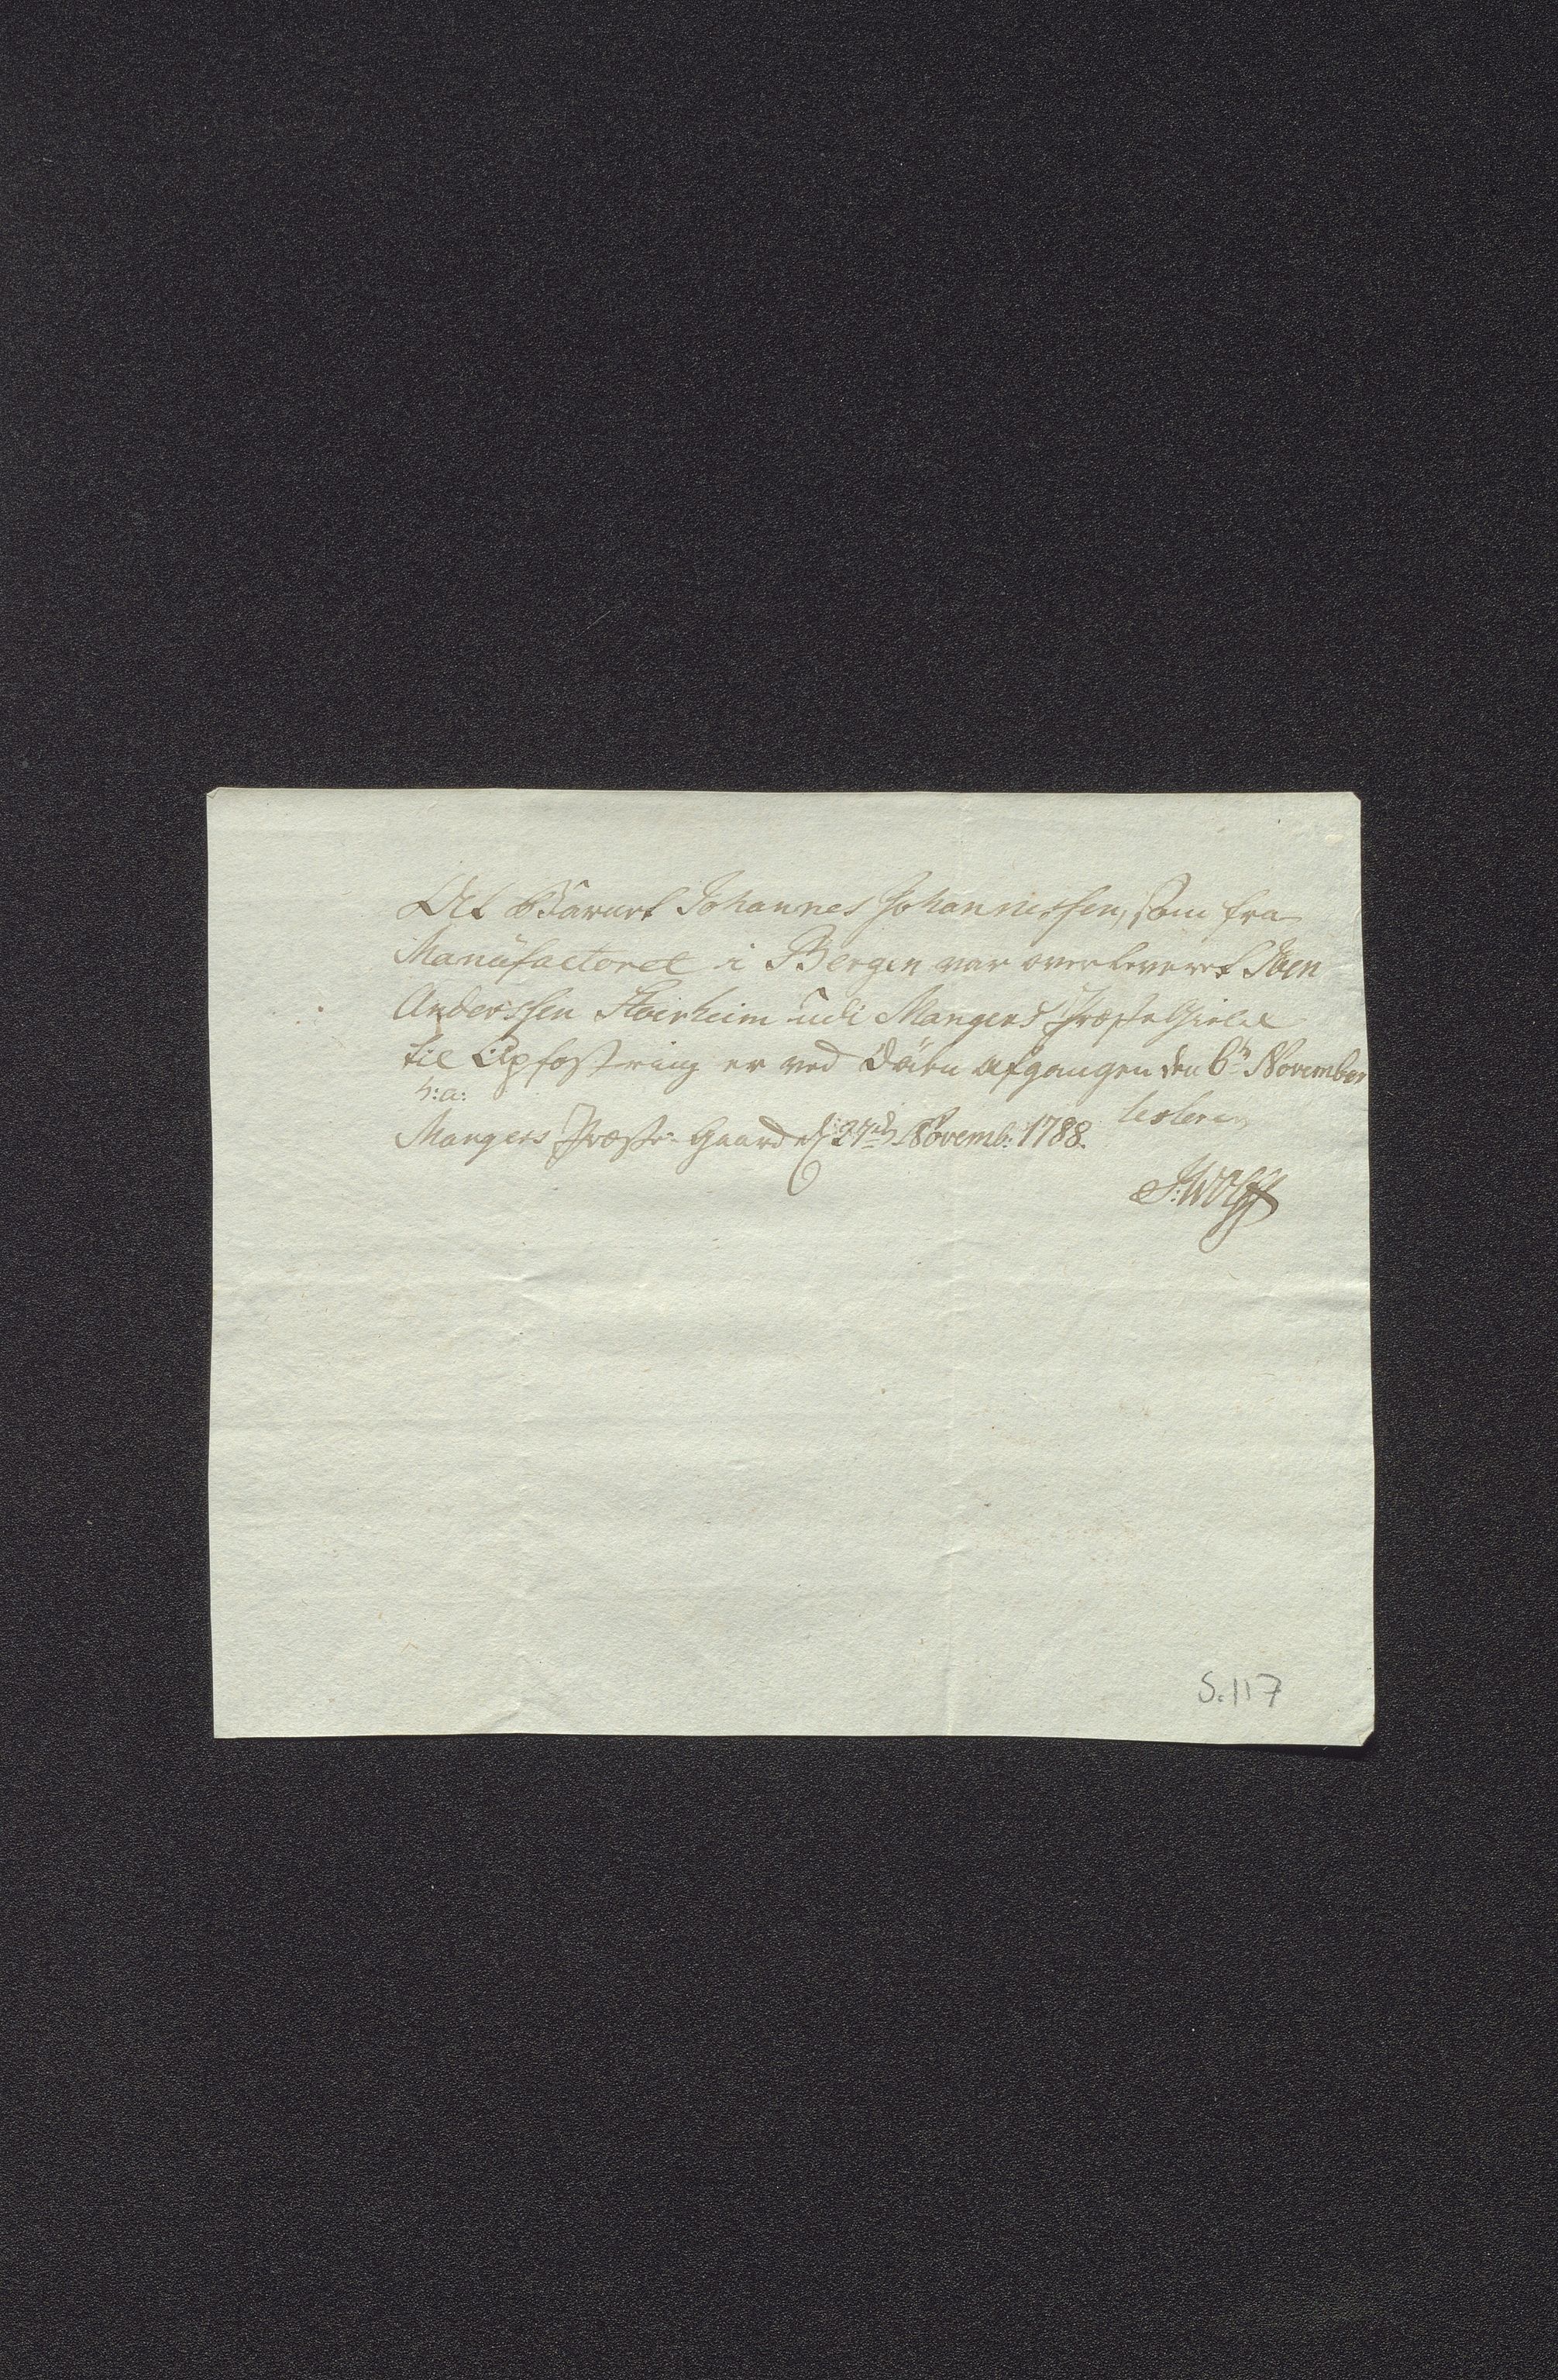 At Barnet Johannes Johannessen, som fra
Manufactoret i Bergen var overleveret Iven
Anderssen Støirheim udi Mangers Præste Gield
til Opfostring er ved Døden afgangen den 6te November
h: a:
testerer
Mangers Præste-Gaard d 27de Novemb: 1788.
J: Wolff
S. 117